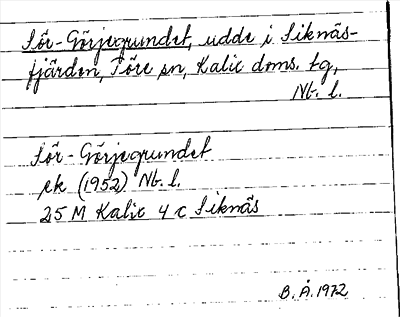 Sör-Görjegrundet, udde i Siknäs-
fjärden, Töre sn, Kalix doms. tg,
Nb. l.
Sör-Görjegrundet
ek (1952) Nb. l.
25 M Kalix 4 c Siknäs
B. Å. 1972